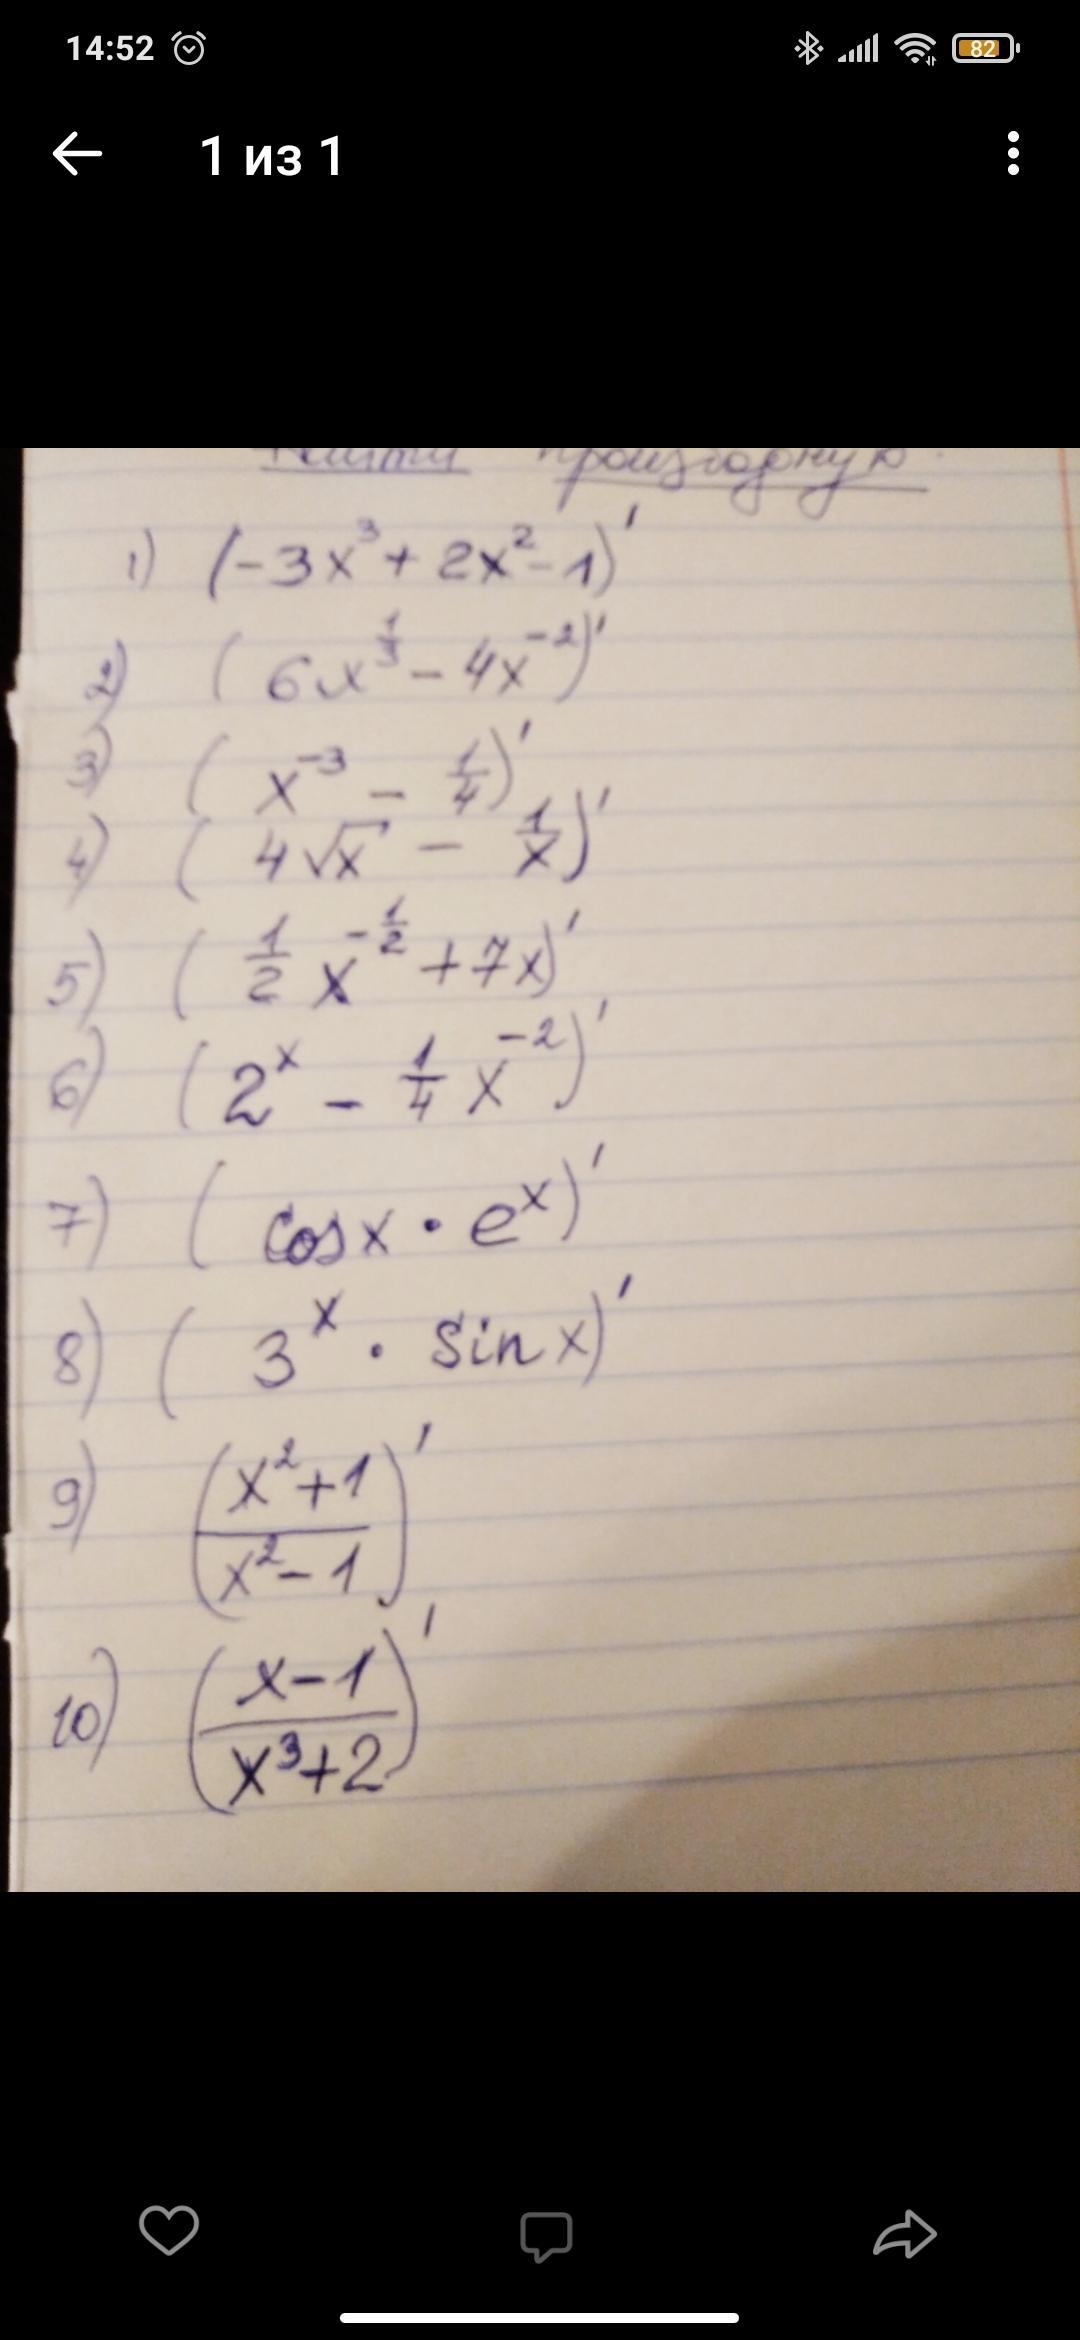 14:52
82
1 из 1
Найти производную.
1) (-3x³ + 2x² - 1)'
2) (6x^{1/3} - 4x^{-2})'
3) (x^{-3} - 1/4)'
4) (4√x - 1/x)'
5) (1/2 x^{-1/2} + 7x)'
6) (2^x - 1/4 x^{-2})'
7) (cosx · e^x)'
8) (3^x · sinx)'
9) ((x²+1)/(x²-1))'
10) ((x-1)/(x³+2))'